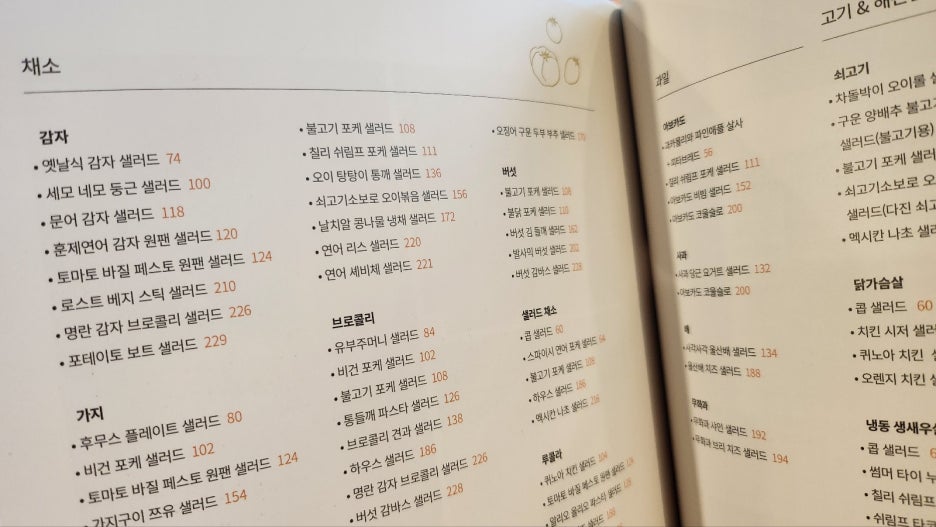 채소
감자
• 옛날식 감자 샐러드 74
• 세모 네모 둥근 샐러드 100
• 문어 감자 샐러드 118
• 훈제연어 감자 원팬 샐러드 120
• 토마토 바질 페스토 원팬 샐러드 124
• 로스트 베지 스틱 샐러드 210
• 명란 감자 브로콜리 샐러드 226
• 포테이토 보트 샐러드 229
가지
• 후무스 플레이트 샐러드 80
• 비건 포케 샐러드 102
• 토마토 바질 페스토 원팬 샐러드 124
• 가지구이 쯔유 샐러드 154
• 불고기 포케 샐러드 108
• 칠리 쉬림프 포케 샐러드 111
• 오이 탕탕이 통깨 샐러드 136
• 쇠고기소보로 오이볶음 샐러드 156
• 날치알 콩나물 냉채 샐러드 172
• 연어 리스 샐러드 220
• 연어 세비체 샐러드 221
브로콜리
• 유부주머니 샐러드 84
• 비건 포케 샐러드 102
• 불고기 포케 샐러드 108
• 통들깨 파스타 샐러드 126
• 브로콜리 견과 샐러드 138
• 하우스 샐러드 186
• 명란 감자 브로콜리 샐러드 226
• 버섯 감바스 샐러드 228
• 오징어 구운 두부 부추 샐러드 170
버섯
• 불고기 포케 샐러드 108
• 불닭 포케 샐러드 110
• 버섯 김 들깨 샐러드 162
• 밤사믹 버섯 샐러드 202
• 버섯 감바스 샐러드 228
샐러드 채소
• 콥 샐러드 60
• 스파이시 연어 포케 샐러드 64
• 불고기 포케 샐러드 108
• 하우스 샐러드 186
• 멕시칸 나초 샐러드 216
루콜라
• 퀴노아 치킨 샐러드 104
• 토마토 바질 페스토 원팬 샐러드 124
• 알리오 올리오 파스타 샐러드
과일
아보카도
파인애플 살사
+ 피타브레드 56
• 칠리 쉬림프 포케 샐러드 111
• 아보카도 비빔 샐러드 152
• 아보카도 코울슬로 200
사과
• 사과 당근 요거트 샐러드 132
• 아보카도 코울슬로 200
배
• 사각사각 울산배 샐러드 134
• 울산배 치즈 샐러드 188
무화과
• 무화과 샤인 샐러드 192
• 무화과 브리 치즈 샐러드 194
고기 &
쇠고기
• 차돌박이 오이롤
• 구운 양배추 불고기
샐러드(불고기용)
• 불고기 포케
• 쇠고기소보로
샐러드(다진
• 멕시칸 나초
닭가슴살
• 콥 샐러드 60
• 치킨 시저
• 퀴노아 치킨
• 오렌지 치킨
냉동 생새우살
• 콥 샐러드
• 썸머 타이
• 칠리 쉬림프
• 쉬림프